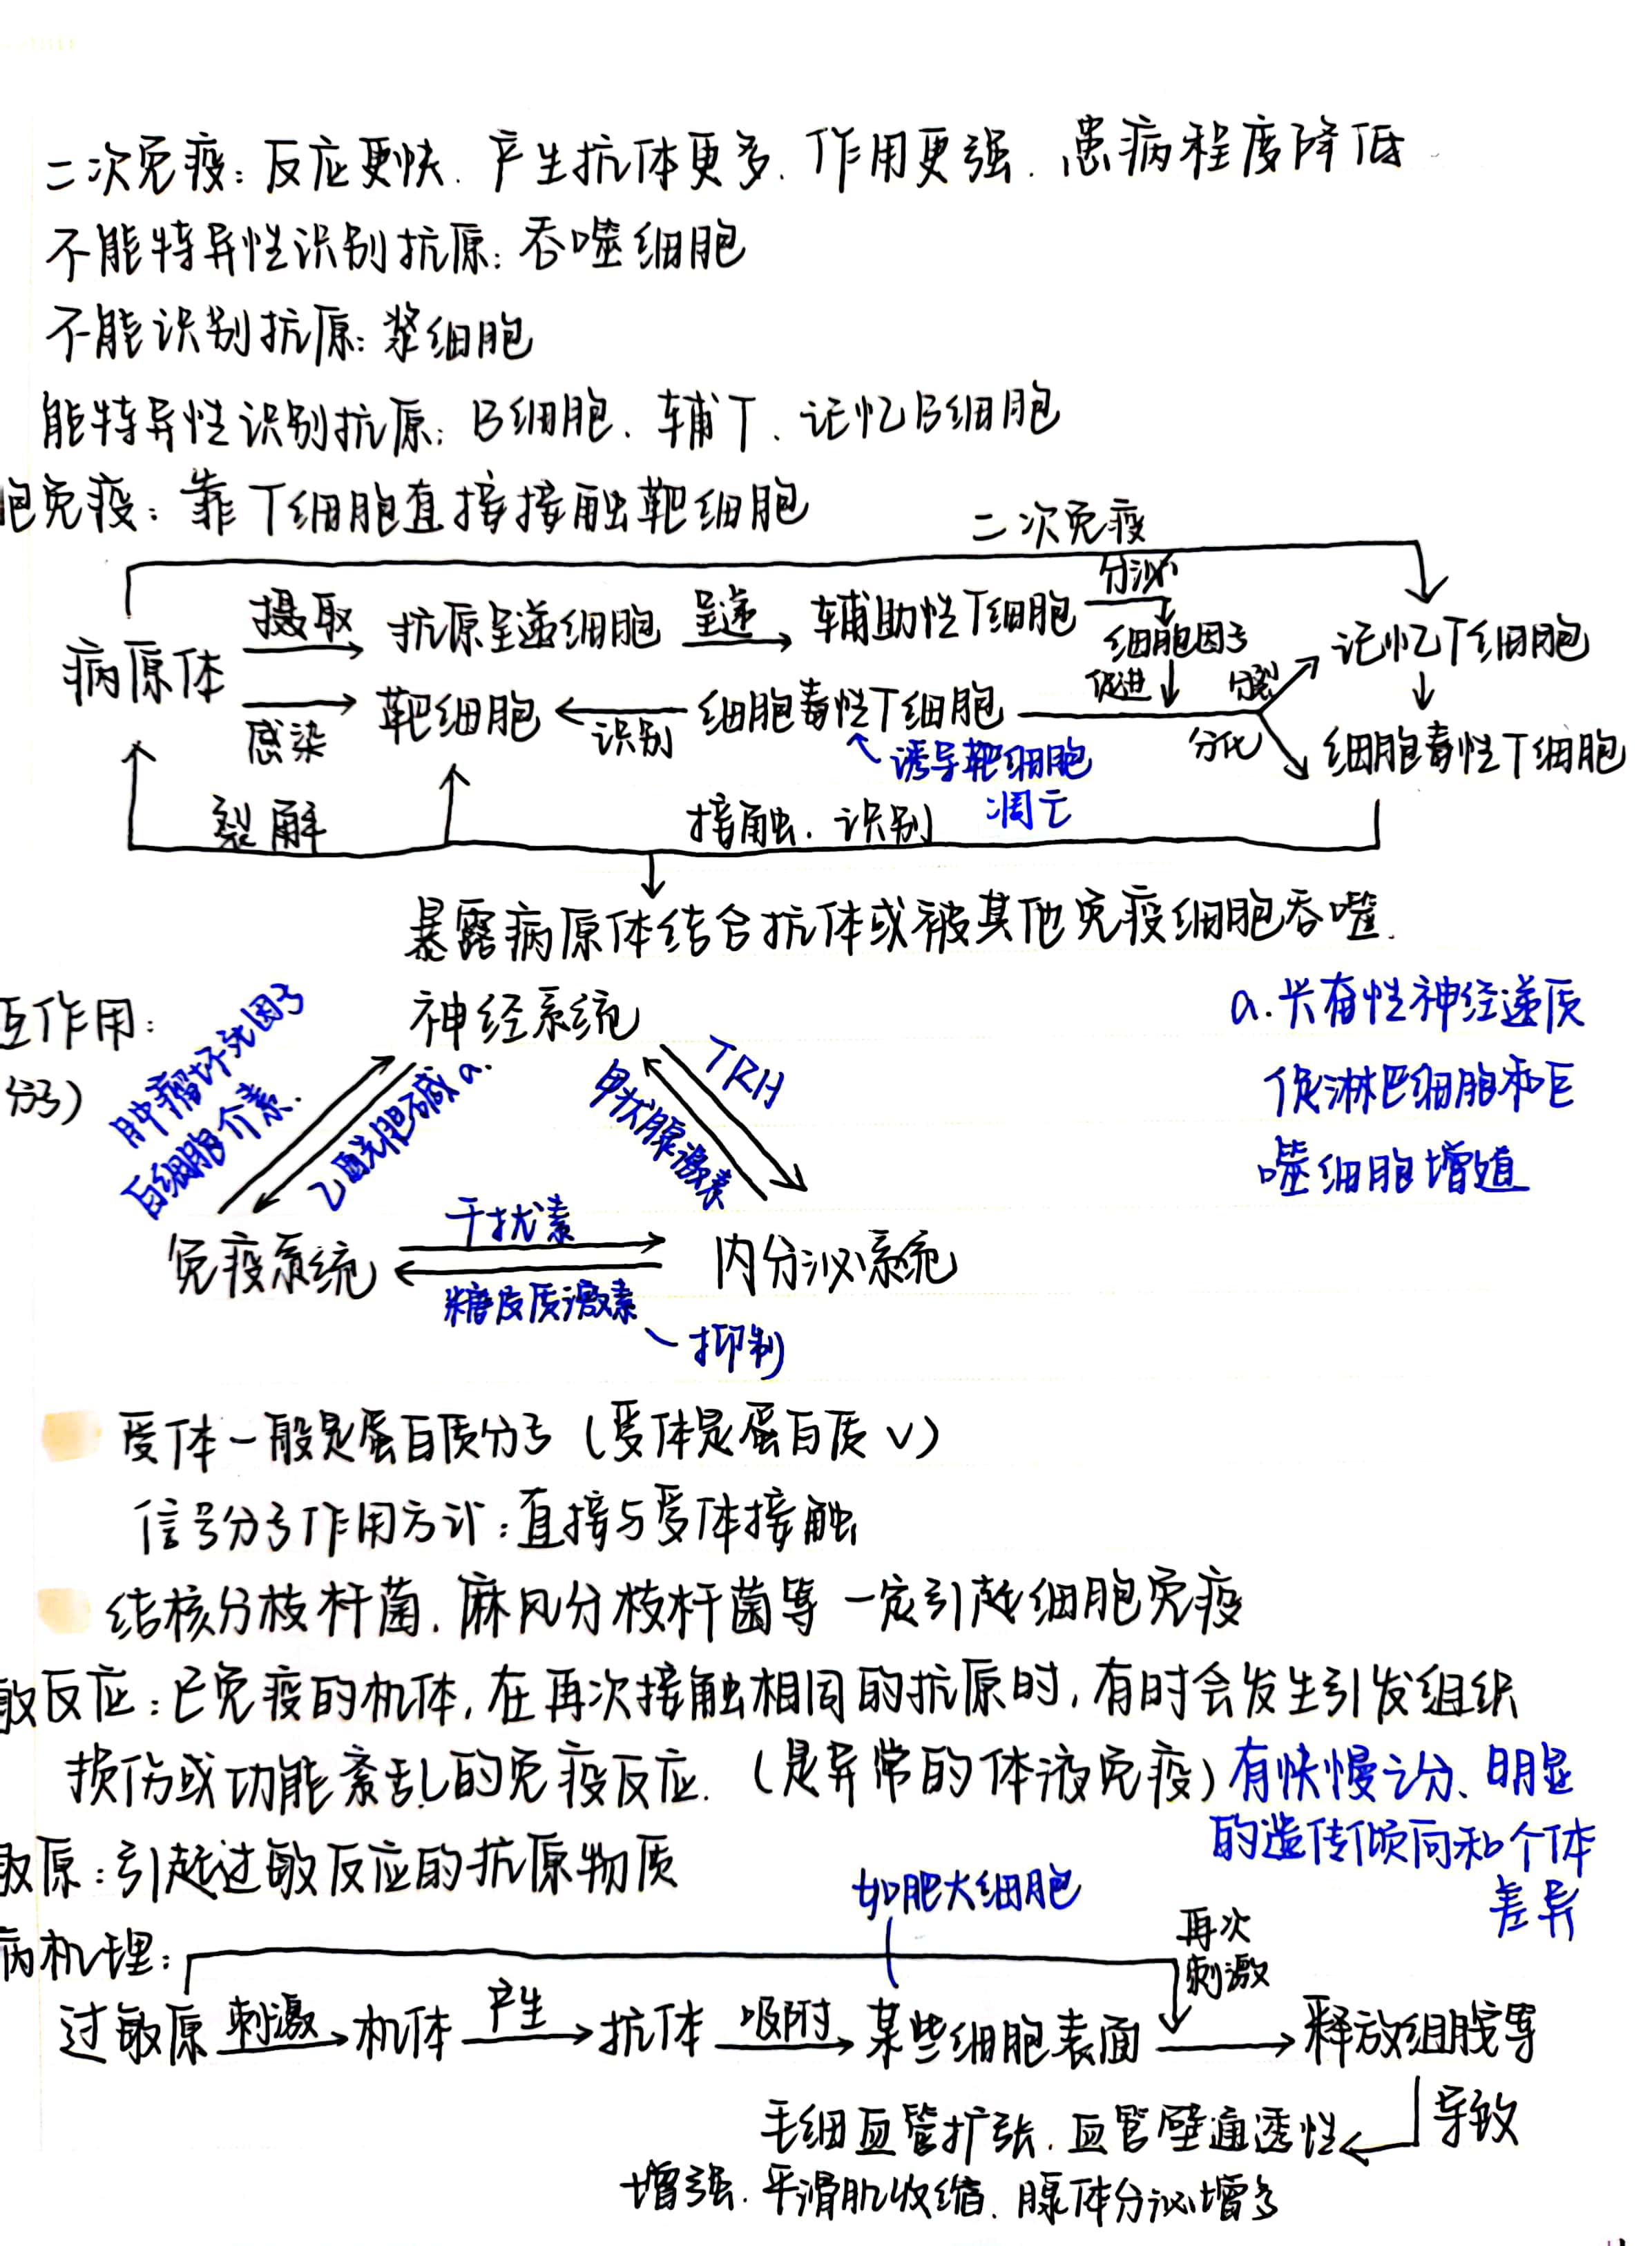 二次免疫：反应更快．产生抗体更多．作用更强．患病程度降低
不能特异性识别抗原：吞噬细胞
不能识别抗原：浆细胞
能特异性识别抗原：B细胞．辅T．记忆B细胞
胞免疫：靠T细胞直接接触靶细胞
二次免疫
病原体 摄取 抗原呈递细胞 呈递 辅助性T细胞 分泌
细胞因子 记忆T细胞
感染 靶细胞 识别 细胞毒性T细胞 促进 分裂
分化 细胞毒性T细胞
诱导靶细胞
凋亡
裂解 接触．识别
暴露病原体结合抗体或被其他免疫细胞吞噬．
互作用：
分子）
神经系统
肿瘤坏死因子
白细胞介素．
乙酰胆碱a.
TRH
甲状腺激素
免疫系统 干扰素 内分泌系统
糖皮质激素
抑制
a.兴奋性神经递质
促淋巴细胞和巨
噬细胞增殖
受体一般是蛋白质分子（受体是蛋白质√）
信号分子作用方式：直接与受体接触
结核分枝杆菌．麻风分枝杆菌等一定引起细胞免疫
敏反应：已免疫的机体，在再次接触相同的抗原时，有时会发生引发组织
损伤或功能紊乱的免疫反应．（是异常的体液免疫）有快慢之分、明显
的遗传倾向和个体
差异
敏原：引起过敏反应的抗原物质
病机理：
如肥大细胞
再次
刺激
过敏原 刺激 机体 产生 抗体 吸附 某些细胞表面 释放组胺等
导致
毛细血管扩张．血管壁通透性
增强．平滑肌收缩．腺体分泌增多